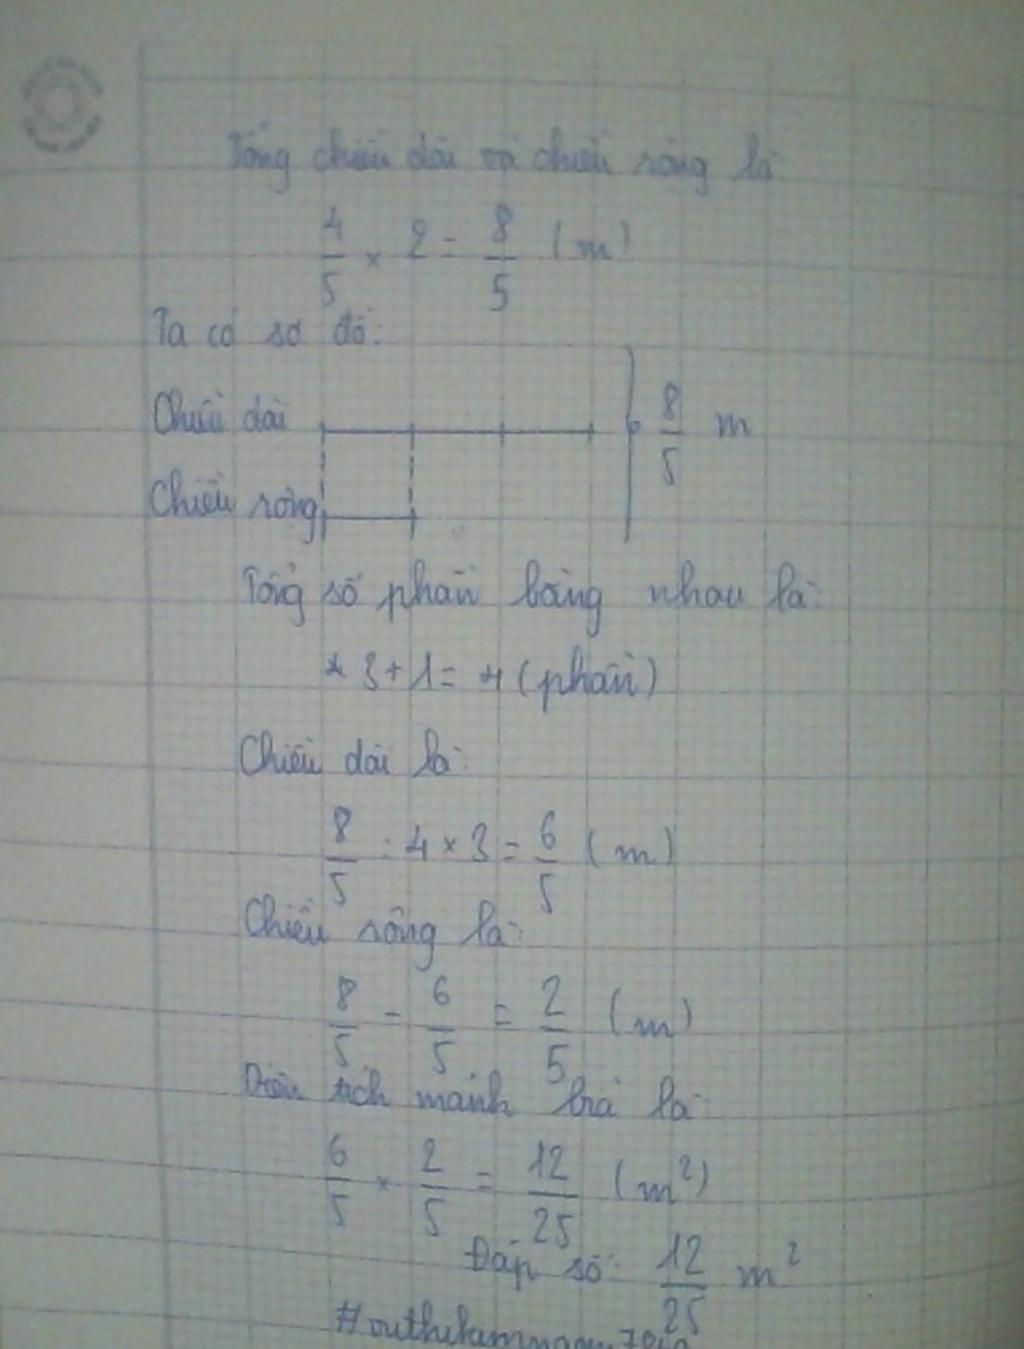 Tổng chiều dài và chiều rộng là
4/5 × 2 = 8/5 (m)
Ta có sơ đồ:
Chiều dài 8/5 m
Chiều rộng
Tổng số phần bằng nhau là:
3 + 1 = 4 (phần)
Chiều dài là:
8/5 : 4 × 3 = 6/5 (m)
Chiều rộng là:
8/5 - 6/5 = 2/5 (m)
Diện tích mảnh bìa là:
6/5 × 2/5 = 12/25 (m²)
Đáp số: 12/25 m²